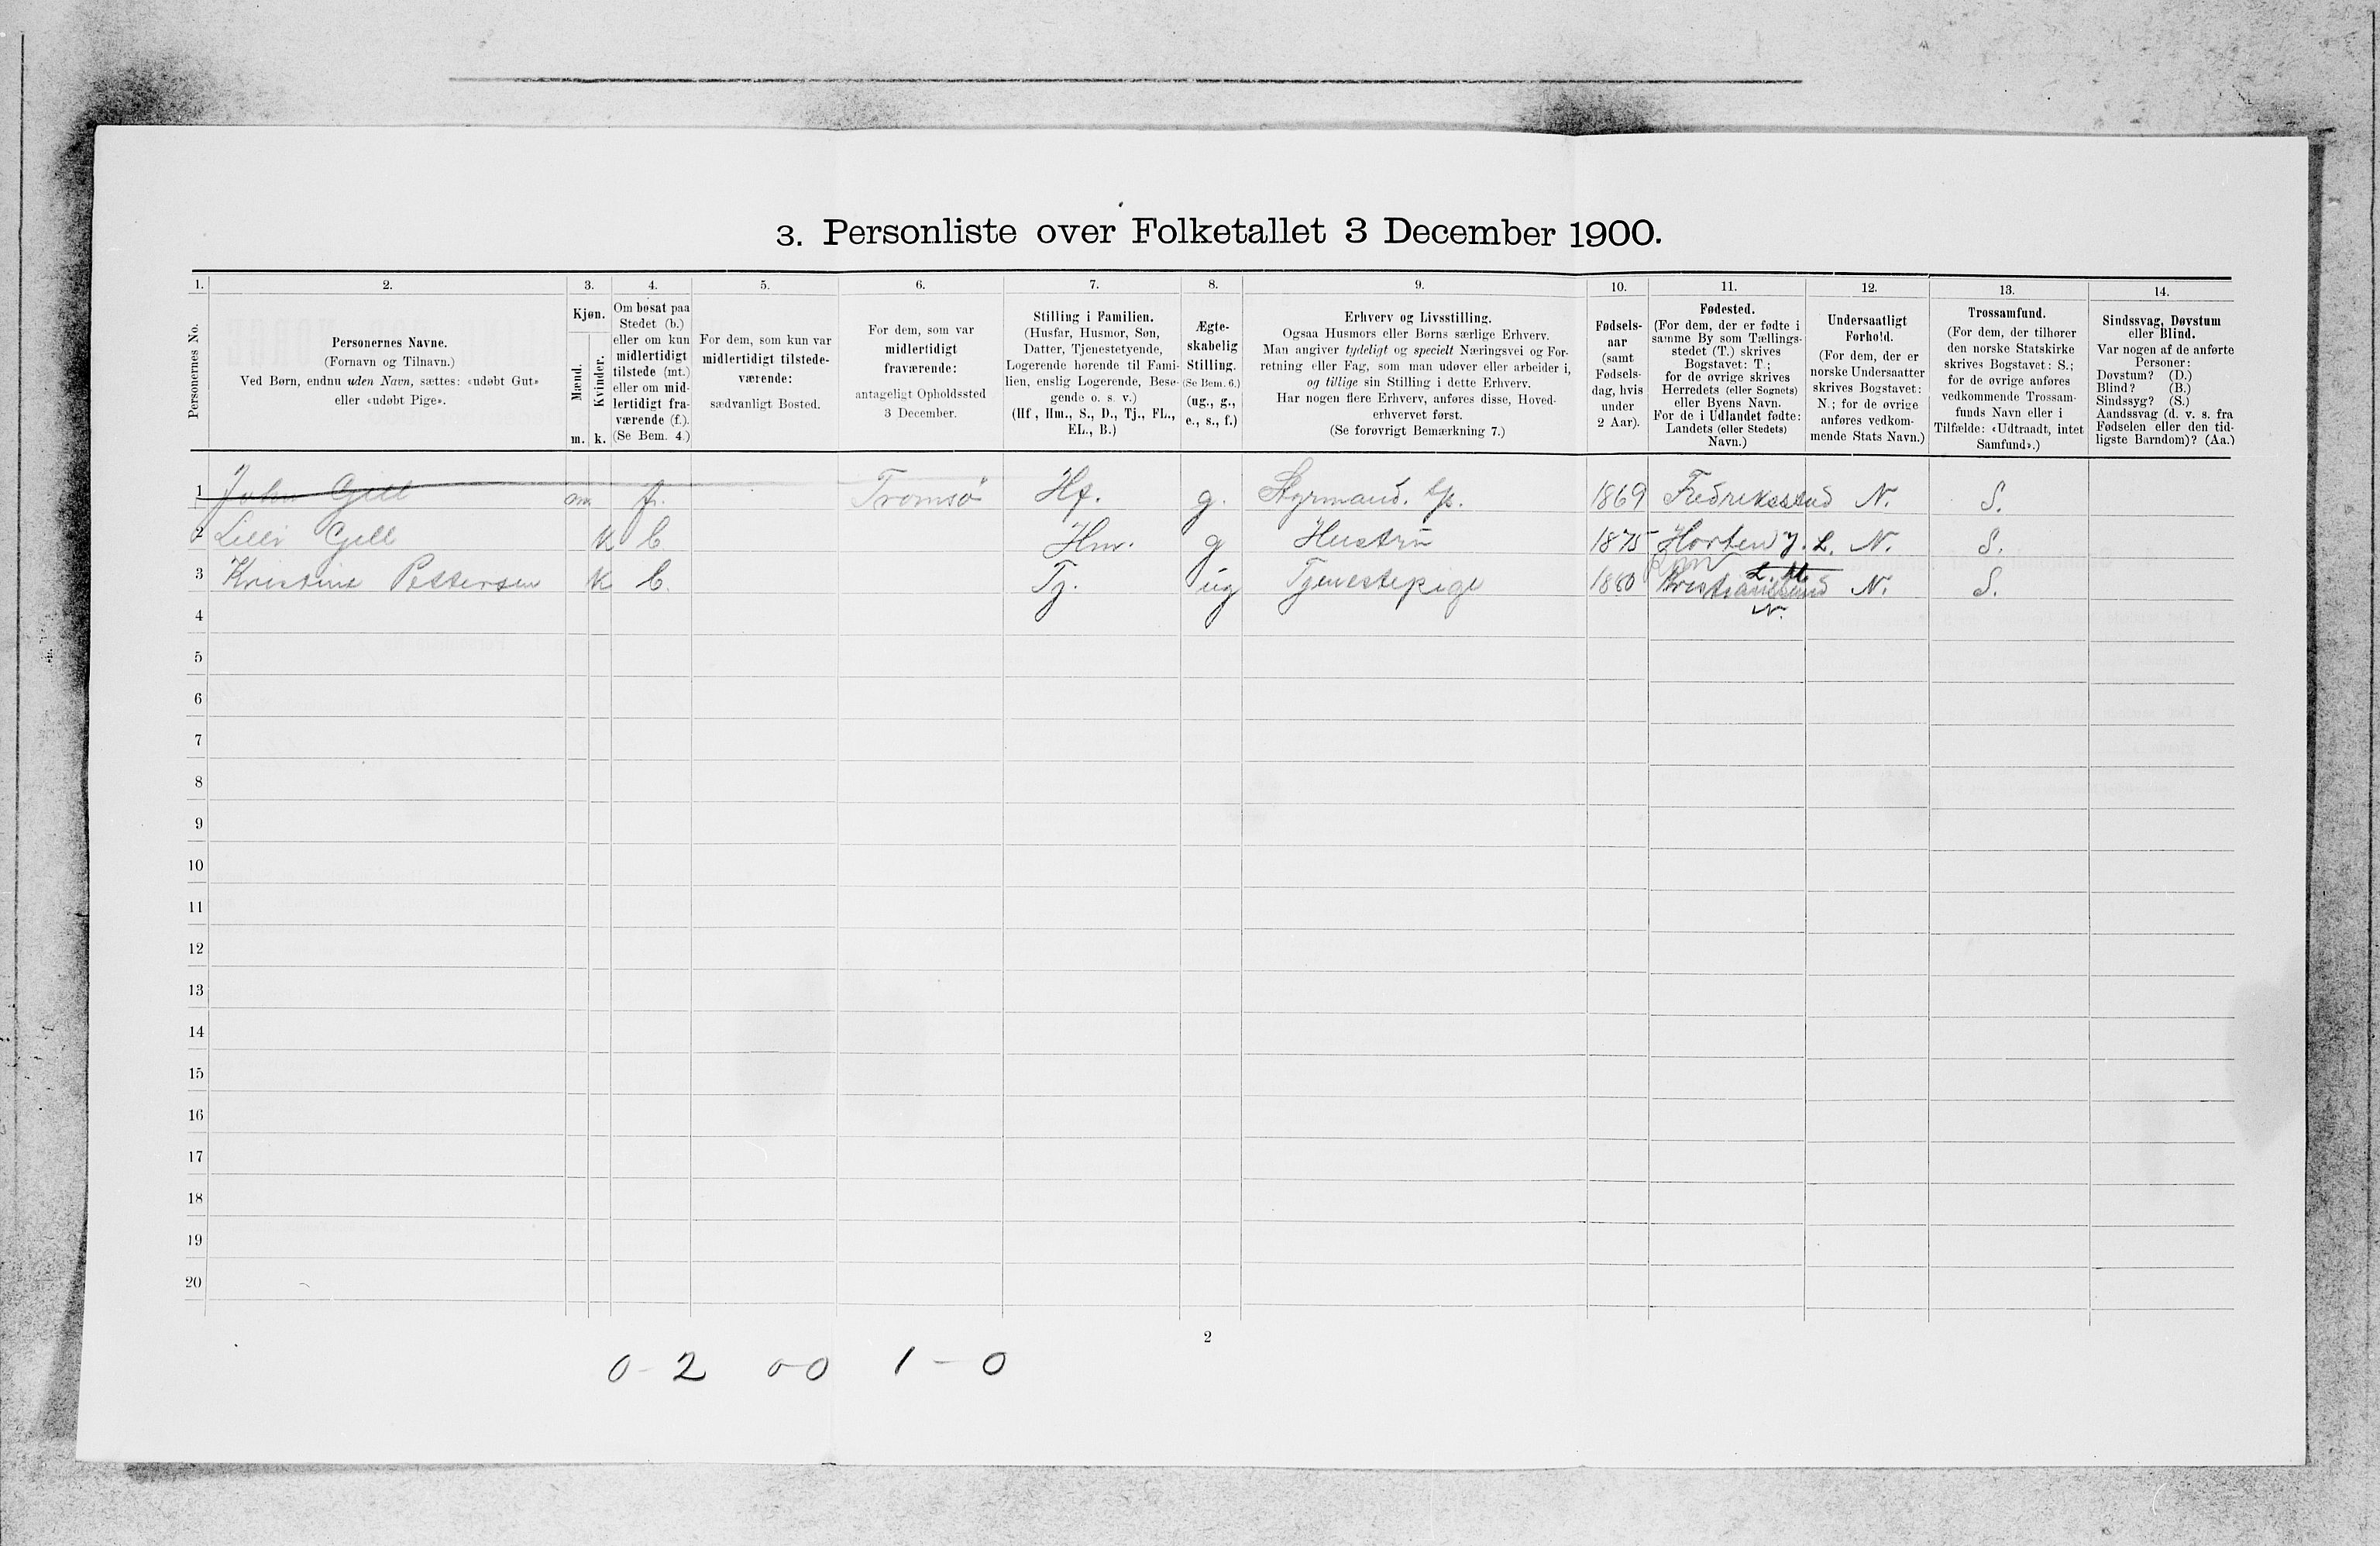 3. Personliste over Folketallet 3 December 1900.
1. 2. 3. 4. 5. 6. 7. 8. 9. 10. 11. 12. 13. 14.
Personernes No.
Personernes Navne.
(Fornavn og Tilnavn.)
Ved Børn, endnu uden Navn, sættes: «udøbt Gut»
eller «udøbt Pige».
Kjøn.
Mænd.
Kvinder.
m. k.
Om bosat paa
Stedet (b.)
eller om kun
midlertidigt
tilstede (mt.)
eller om mid-
lertidigt fra-
værende (f.).
(Se Bem. 4.)
For dem, som kun var
midlertidigt tilstede-
værende:
sædvanligt Bosted.
For dem, som var
midlertidigt
fraværende:
antageligt Opholdssted
3 December.
Stilling i Familien.
(Husfar, Husmor, Søn,
Datter, Tjenestetyende,
Logerende hørende til Fami-
lien, enslig Logerende, Besø-
gende o. s. v.)
(Hf., Hm., S., D., Tj., FL.,
EL., B.)
Ægte-
skabelig
Stilling.
(Se Bem. 6.)
(ug., g.,
e., s., f.)
Erhverv og Livsstilling.
Ogsaa Husmors eller Børns særlige Erhverv.
Man angiver tydeligt og specielt Næringsvei og For-
retning eller Fag, som man udøver eller arbeider i,
og tillige sin Stilling i dette Erhverv.
Har nogen flere Erhverv, anføres disse, Hoved-
erhvervet først.
(Se forøvrigt Bemærkning 7.)
Fødsels-
aar
(samt
Fødsels-
dag, hvis
under
2 Aar).
Fødested.
(For dem, der er fødte i
samme By som Tællings-
stedet (T.) skrives
Bogstavet: T.;
for de øvrige skrives
Herredets (eller Sognets)
eller Byens Navn.
For de i Udlandet fødte:
Landets (eller Stedets)
Navn.)
Undersaatligt
Forhold.
(For dem, der er
norske Undersaatter
skrives Bogstavet:
N.; for de øvrige
anføres vedkom-
mende Stats Navn.)
Trossamfund.
(For dem, der tilhører
den norske Statskirke
skrives Bogstavet: S.;
for de øvrige anføres
vedkommende Trossam-
funds Navn eller i
Tilfælde: «Udtraadt, intet
Samfund».)
Sindssvag, Døvstum
eller Blind.
Var nogen af de anførte
Personer:
Døvstum? (D.)
Blind? (B.)
Sindssyg? (S.)
Aandssvag (d. v. s. fra
Fødselen eller den tid-
ligste Barndom)? (Aa.)
1 John Gill m f. Tromsø Hf. g. Styrmand. 1869 Fredriksstad N. S.
2 Lilli Gill k b Hm. g Hustru 1875 Horten J. L. N. S.
3 Kristine Pettersen k b. Tj. ug Tjenestepige 1880 Kristiansund N. S.
N.
4
5
6
7
8
9
10
11
12
13
14
15
16
17
18
19
20
2
0-2 0-0 1-0